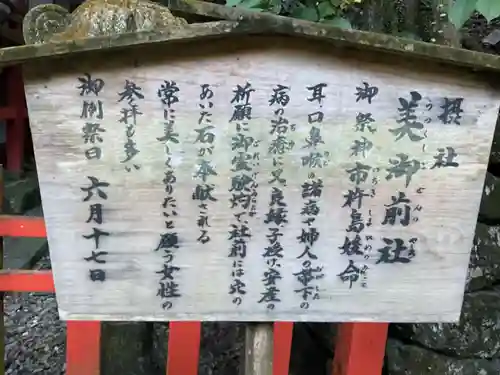 摂社
美御前社
御祭神 市杵島姫命
耳・口・鼻・喉の諸病や婦人の帯下の
病の治癒に又良縁・子授け・安産の
祈願に御霊験灼で、社前には穴の
あいた石が奉献される
常に美しくありたいと願う女性の
参拝も多い
御例祭日 六月十七日